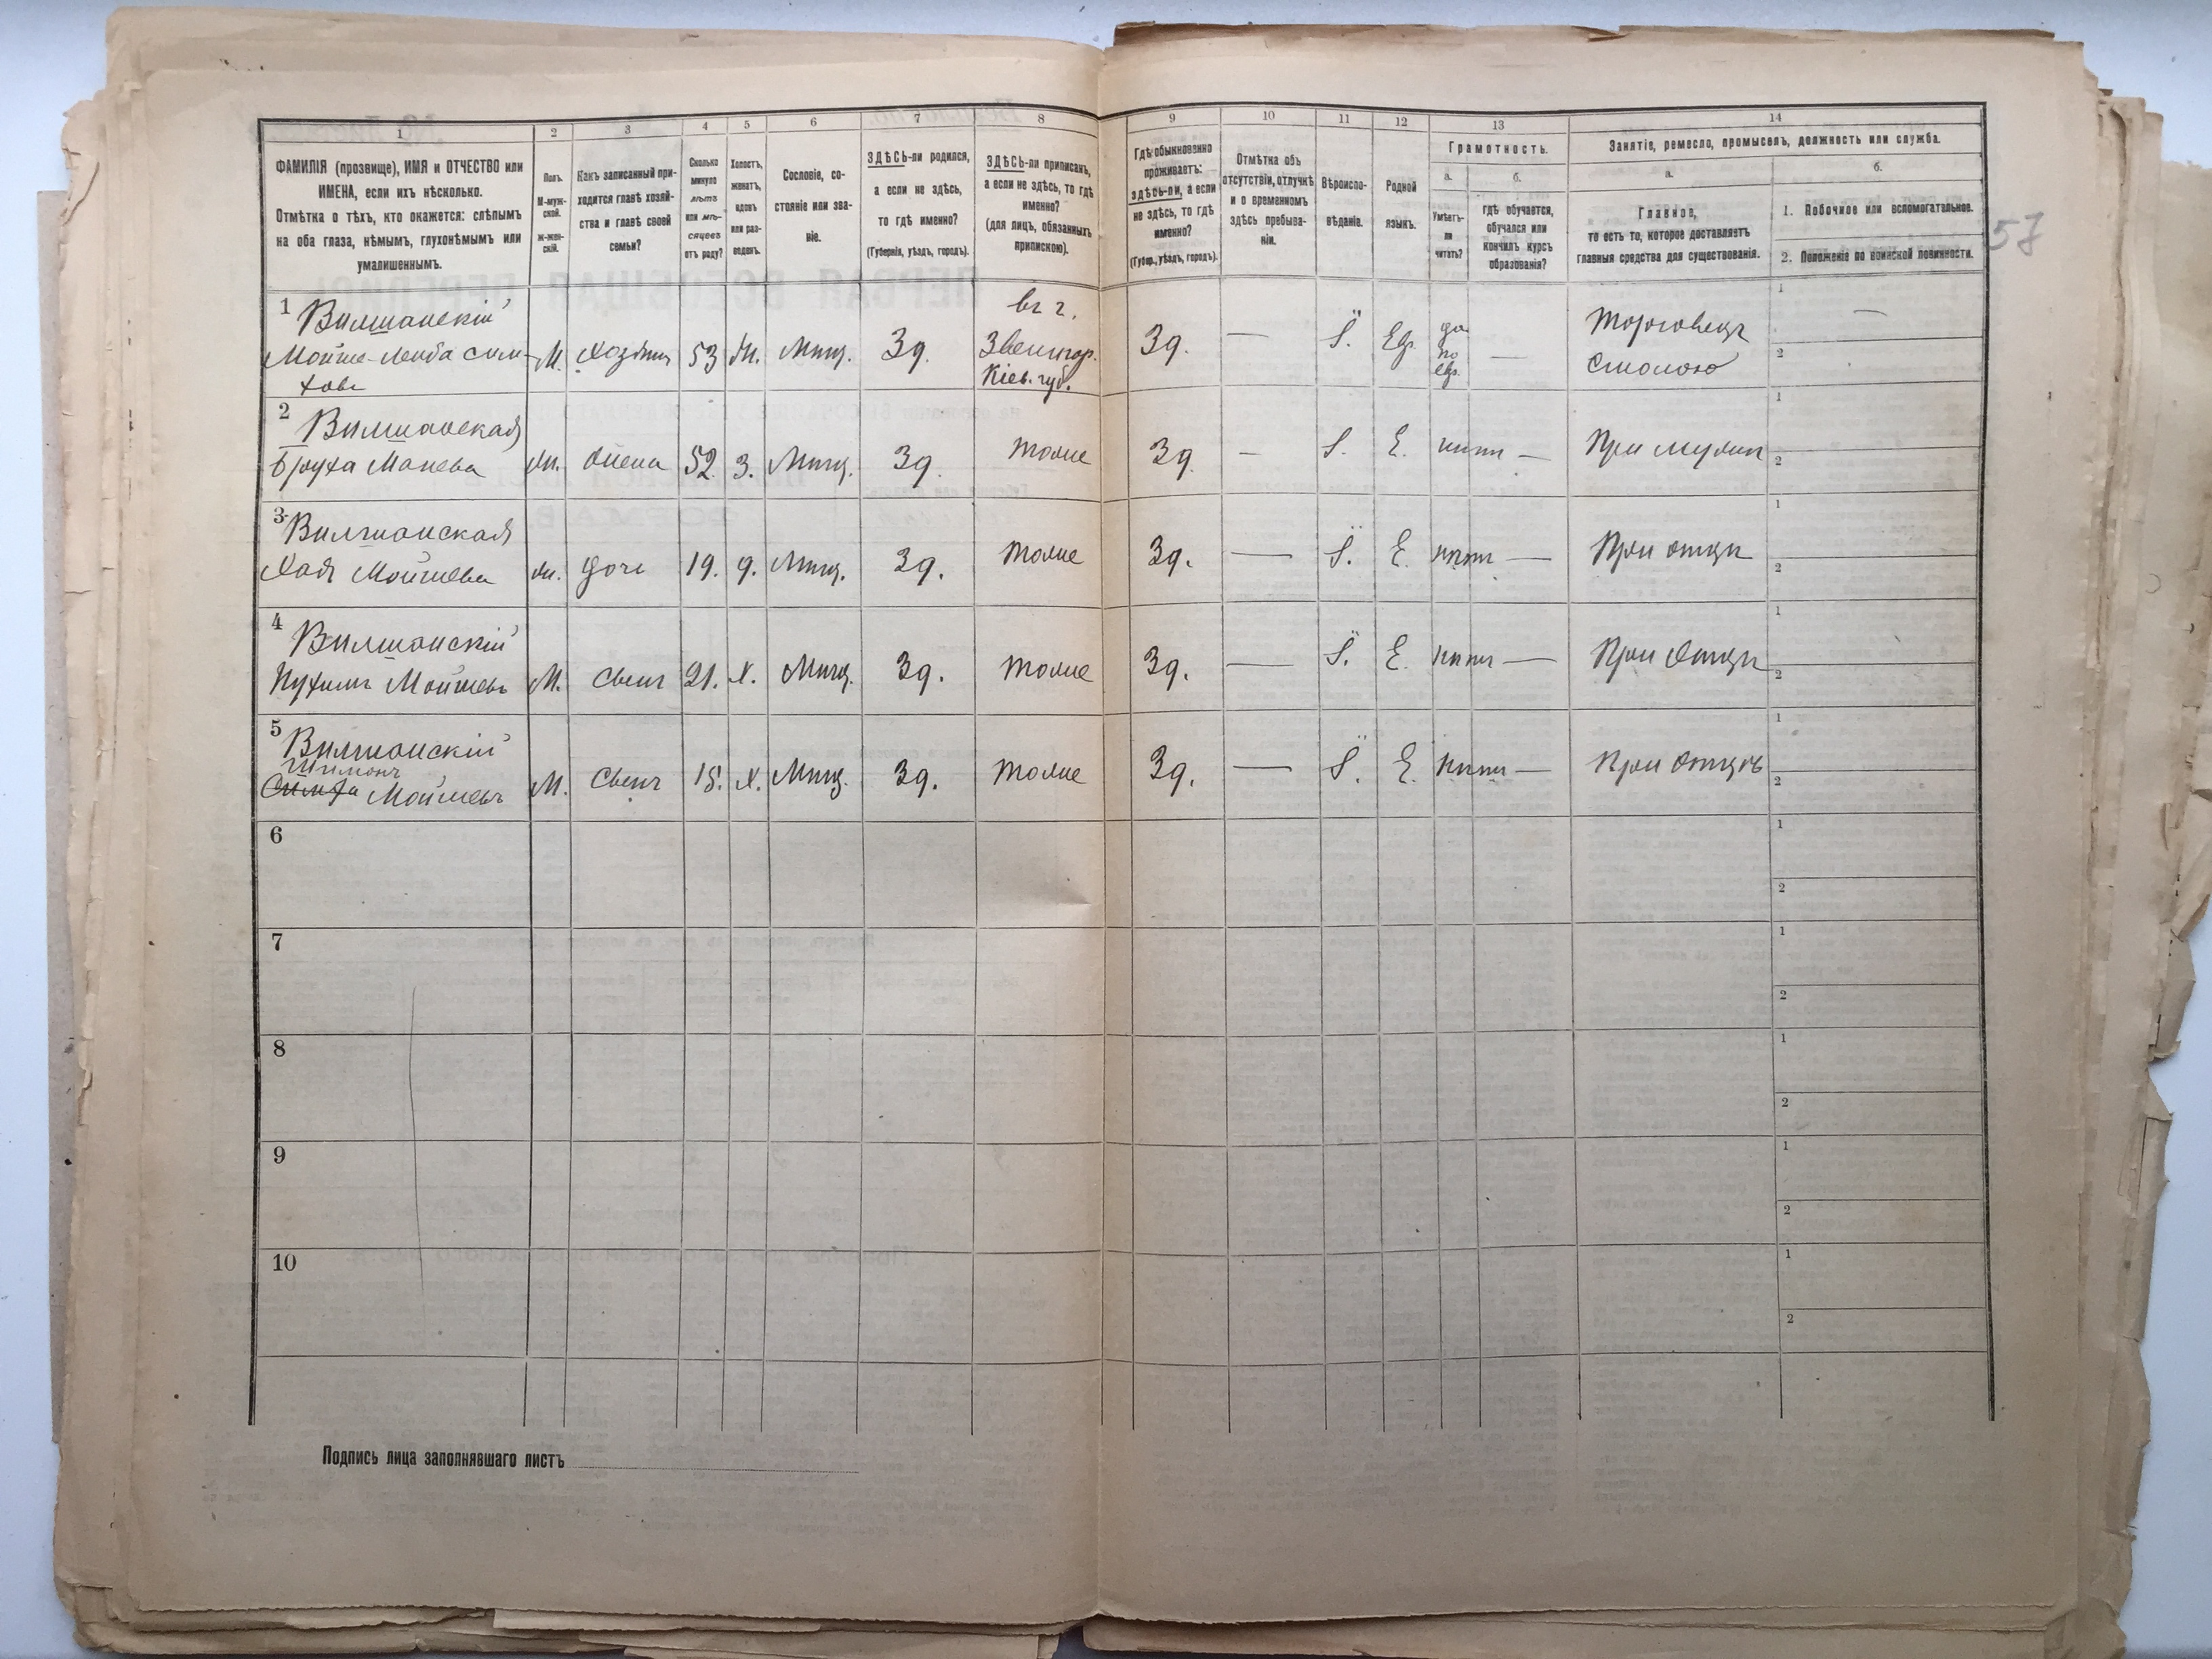 1 2 3 4 5 6 7 8 9 10 11 12 13 14
ФАМИЛІЯ (прозвище), ИМЯ и ОТЧЕСТВО или
ИМЕНА, если ихъ нѣсколько.
Отмѣтка о тѣхъ, кто окажется: слѣпымъ
на оба глаза, нѣмымъ, глухонѣмымъ или
умалишеннымъ.
Полъ.
М-муж-
ской.
Ж-жен-
скій.
Какъ записанный при-
ходится главѣ хозяй-
ства и главѣ своей
семьи?
Сколько
минуло
лѣтъ
или мѣ-
сяцевъ
отъ роду?
Холостъ,
женатъ,
вдовъ
или раз-
веденъ.
Сословіе, со-
стояніе или зва-
ніе.
ЗДѢСЬ-ли родился,
а если не здѣсь,
то гдѣ именно?
(Губернія, уѣздъ, городъ).
ЗДѢСЬ-ли приписанъ,
а если не здѣсь, то гдѣ
именно?
(для лицъ, обязанныхъ
припискою).
Гдѣ обыкновенно
проживаетъ:
здѣсь-ли, а если
не здѣсь, то гдѣ
именно?
(Губер., уѣздъ, городъ).
Отмѣтка объ
отсутствіи, отлучкѣ
и о временномъ
здѣсь пребыва-
ніи.
Вѣроиспо-
вѣданіе.
Родной
языкъ.
Грамотность.
а.
Умѣетъ-
ли
читать?
б.
гдѣ обучается,
обучался или
кончилъ курсъ
образованія?
Занятіе, ремесло, промыселъ, должность или служба.
а.
Главное,
то есть то, которое доставляетъ
главныя средства для существованія.
б.
1. Побочное или вспомогательное.
2. Положеніе по воинской повинности.
57
1 Вилшанскій
Мойше-Лейба Сим-
ховъ
М. Хозяинъ 53 Ж. Мѣщ. Зд.
въ г.
Звенигор.
Кіев. губ.
Зд. — І. Евр.
да
по
евр.
—
Торговецъ
Смолою
—
1
2
2 Вилшанская
Бруха Манева Ж. Жена 52. З. Мѣщ. Зд. тоже Зд. — І. Е. нѣтъ — При мужѣ
1
2
3 Вилшанская
Хая Мойшева Ж. дочь 19. д. Мѣщ. Зд. тоже Зд. — І. Е. нѣтъ — При отцѣ
1
2
4 Вилшанскій
Нухимъ Мойшевъ М. Сынъ 21. Х. Мѣщ. Зд. тоже Зд. — І. Е. нѣтъ — При отцѣ
1
2
5 Вилшанскій
Шимонъ
Симха Мойшевъ М. Сынъ 18. Х. Мѣщ. Зд. тоже Зд. — І. Е. нѣтъ — При отцѣ
1
2
6
1
2
7
1
2
8
1
2
9
1
2
10
1
2
Подпись лица заполнявшаго листъ